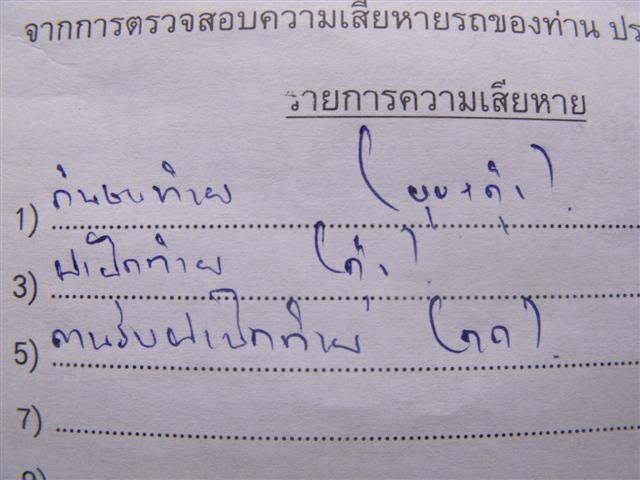 จากการตรวจสอบความเสียหายรถของท่าน ปร
รายการความเสียหาย
1) กันชนท้าย (ยุบ+ดุ้ง)
3) ฝาเปิดท้าย (ดุ้ง)
5) คานรับฝาเปิดท้าย (คด)
7)